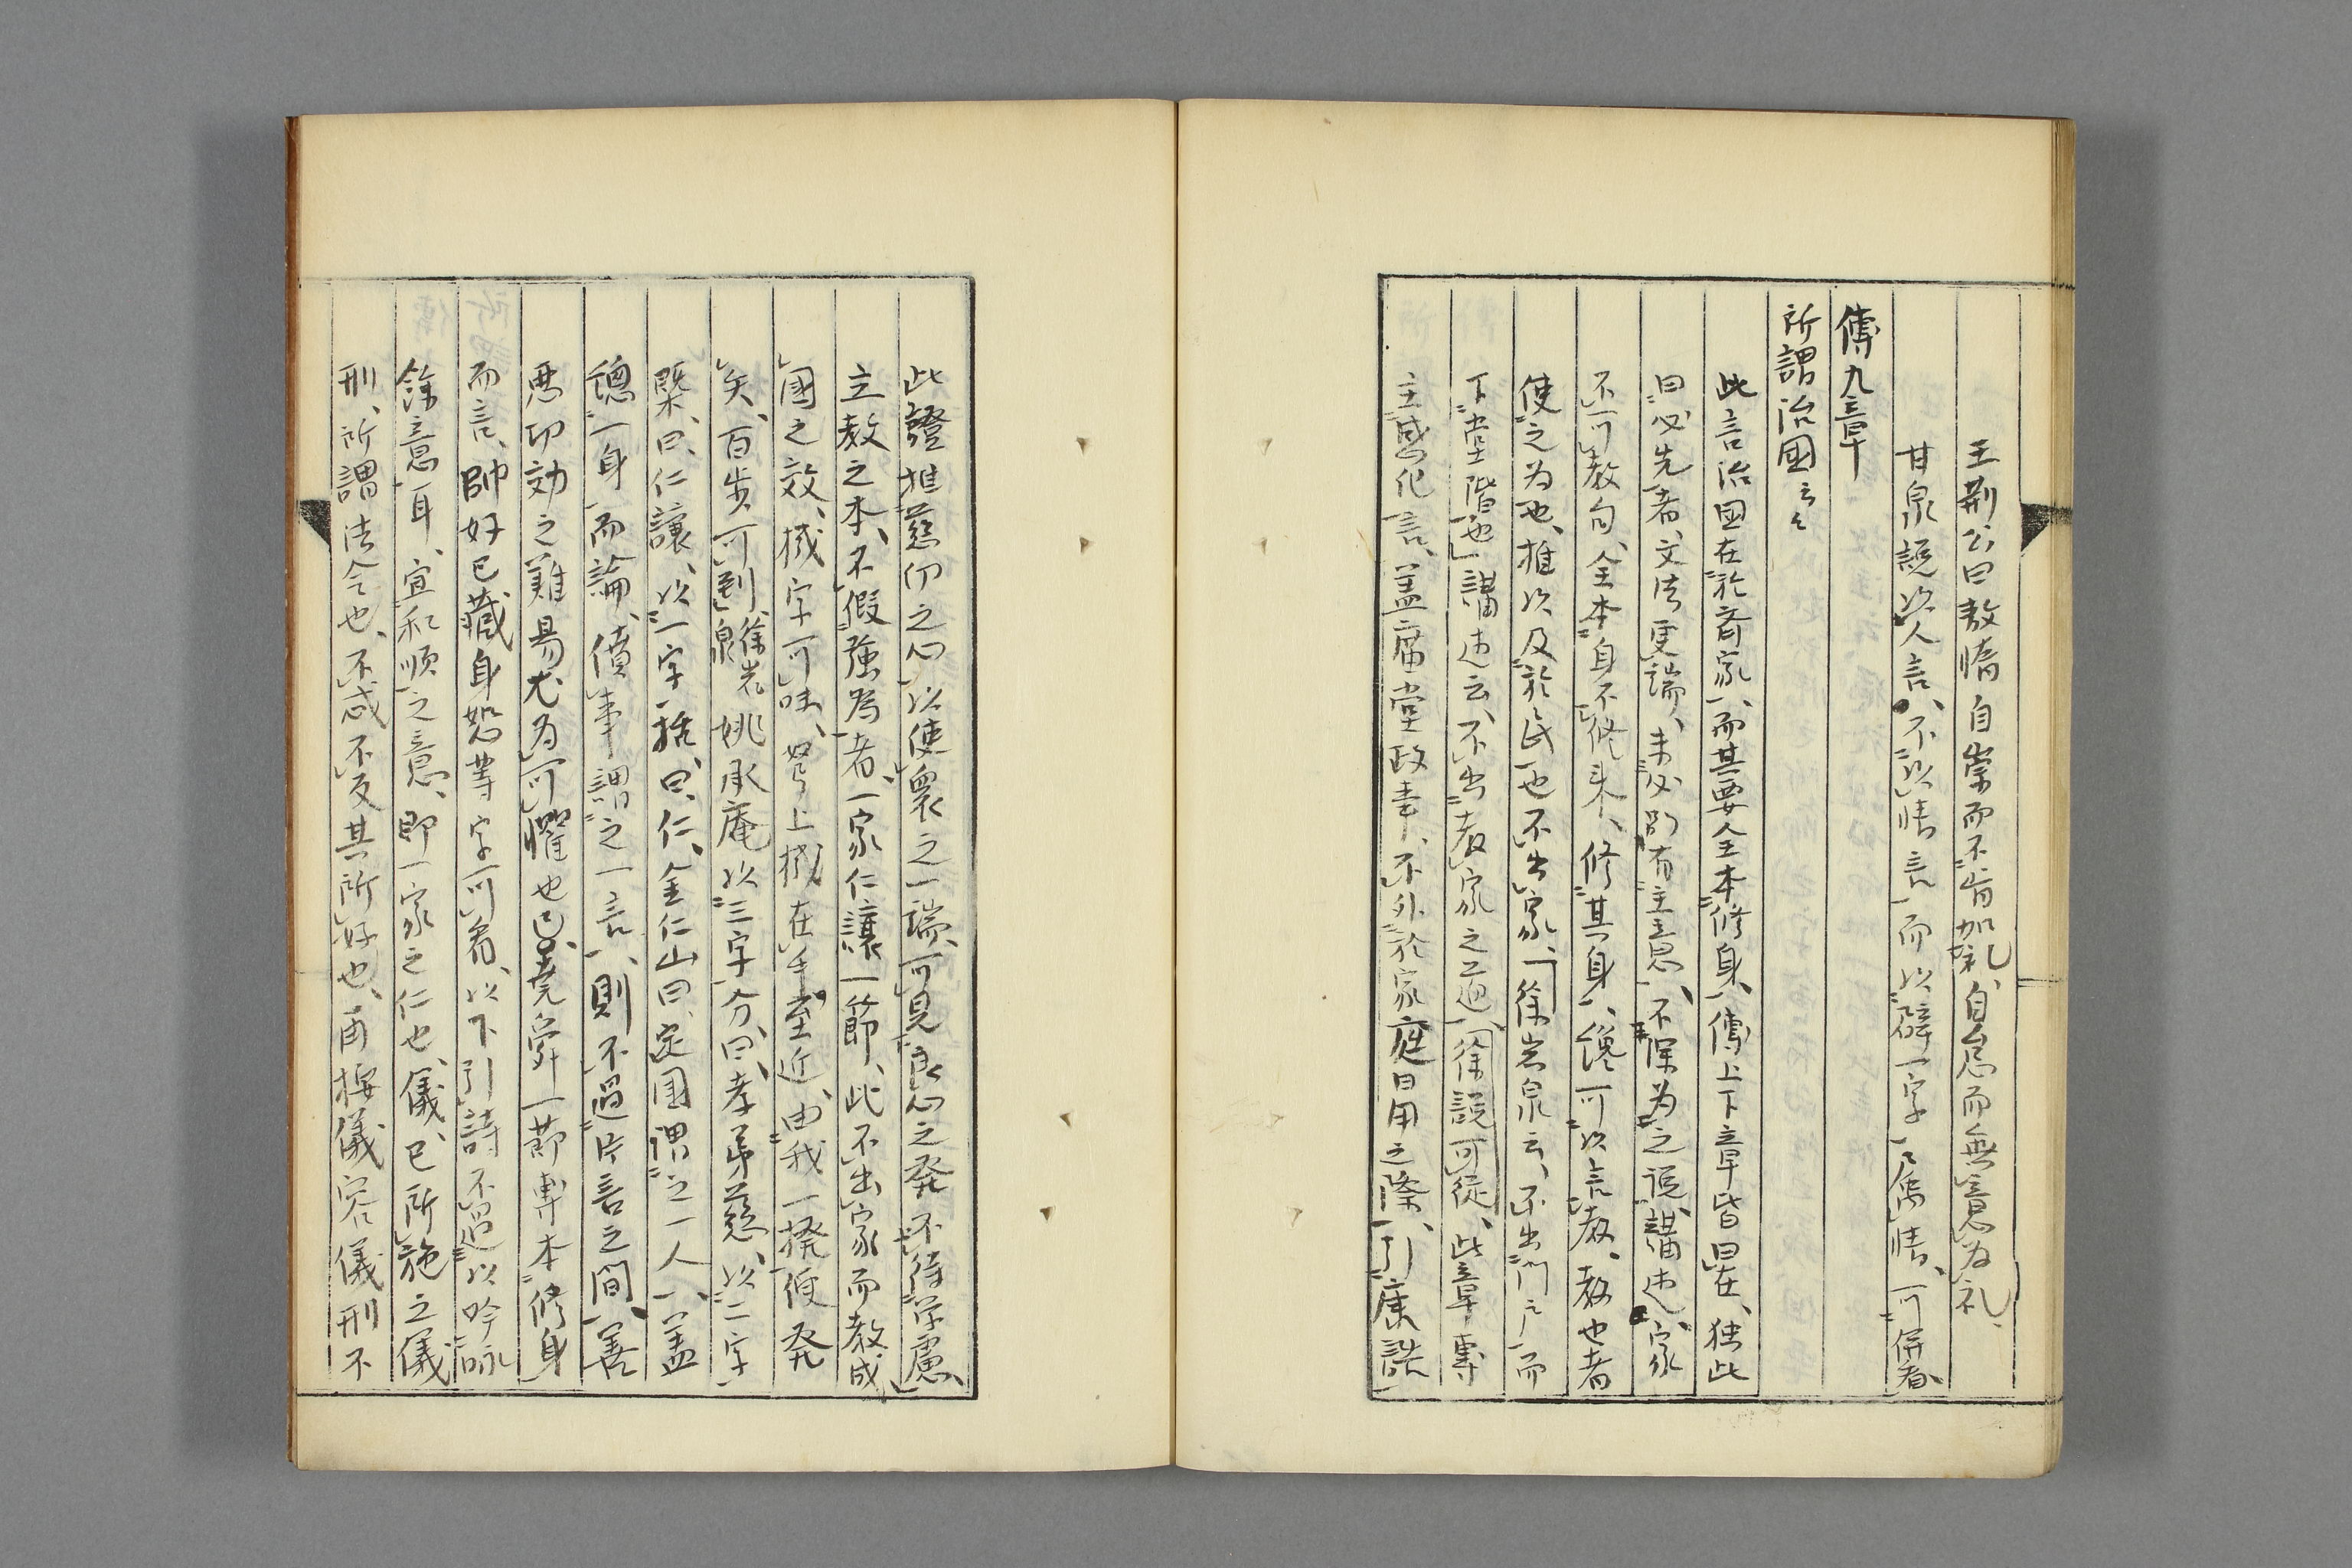 王荆公曰敖惰自崇而不肯加礼、自怠而無意为礼、
甘泉説以人言、不以情言、而以辟一字属情、可併看、
傳九章
所謂治国云々
此言治国在於斉家、而其要全本修身、傳上下章皆曰在、独此
曰必先者、文法更端、未必別有主意、不深为之説、講述、家
不可教句、全本自不修来、修其身、纔可以言教、教也者
使之为也、推以及於民也、不出家、徐岩泉云、不出門戸而
下堂階也、講述云、不出教家之道、徐説可従、此章專
主感化言、盖庙堂政事、不外於家庭日用之際、引康誥
此證推慈幼之心、以使衆之一端、可見良心之発、不待学慮、
立教之本、不假強為者、一家仁讓一節、此不出家而教成
國之效、機字可味、弩上機在手至近、由我一撥便発
矣、百步可到、徐岩泉姚承庵以三字分、曰、孝弟慈、以二字
槩、曰、仁讓、以一字括、曰、仁、金仁山曰、定国謂之一人、盖
總一身而論、僨事謂之一言、則不過片言之間、善
悪功効之難易尤为可懼也已、堯舜一節專本修身
而言、帥好已藏身恕等字可着、以下引詩不過以吟咏
餘意耳、宜和順之意、即一家之仁也、儀、已所施之儀
刑、所謂法令也、不忒不反其所好也、甬按儀容儀刑不